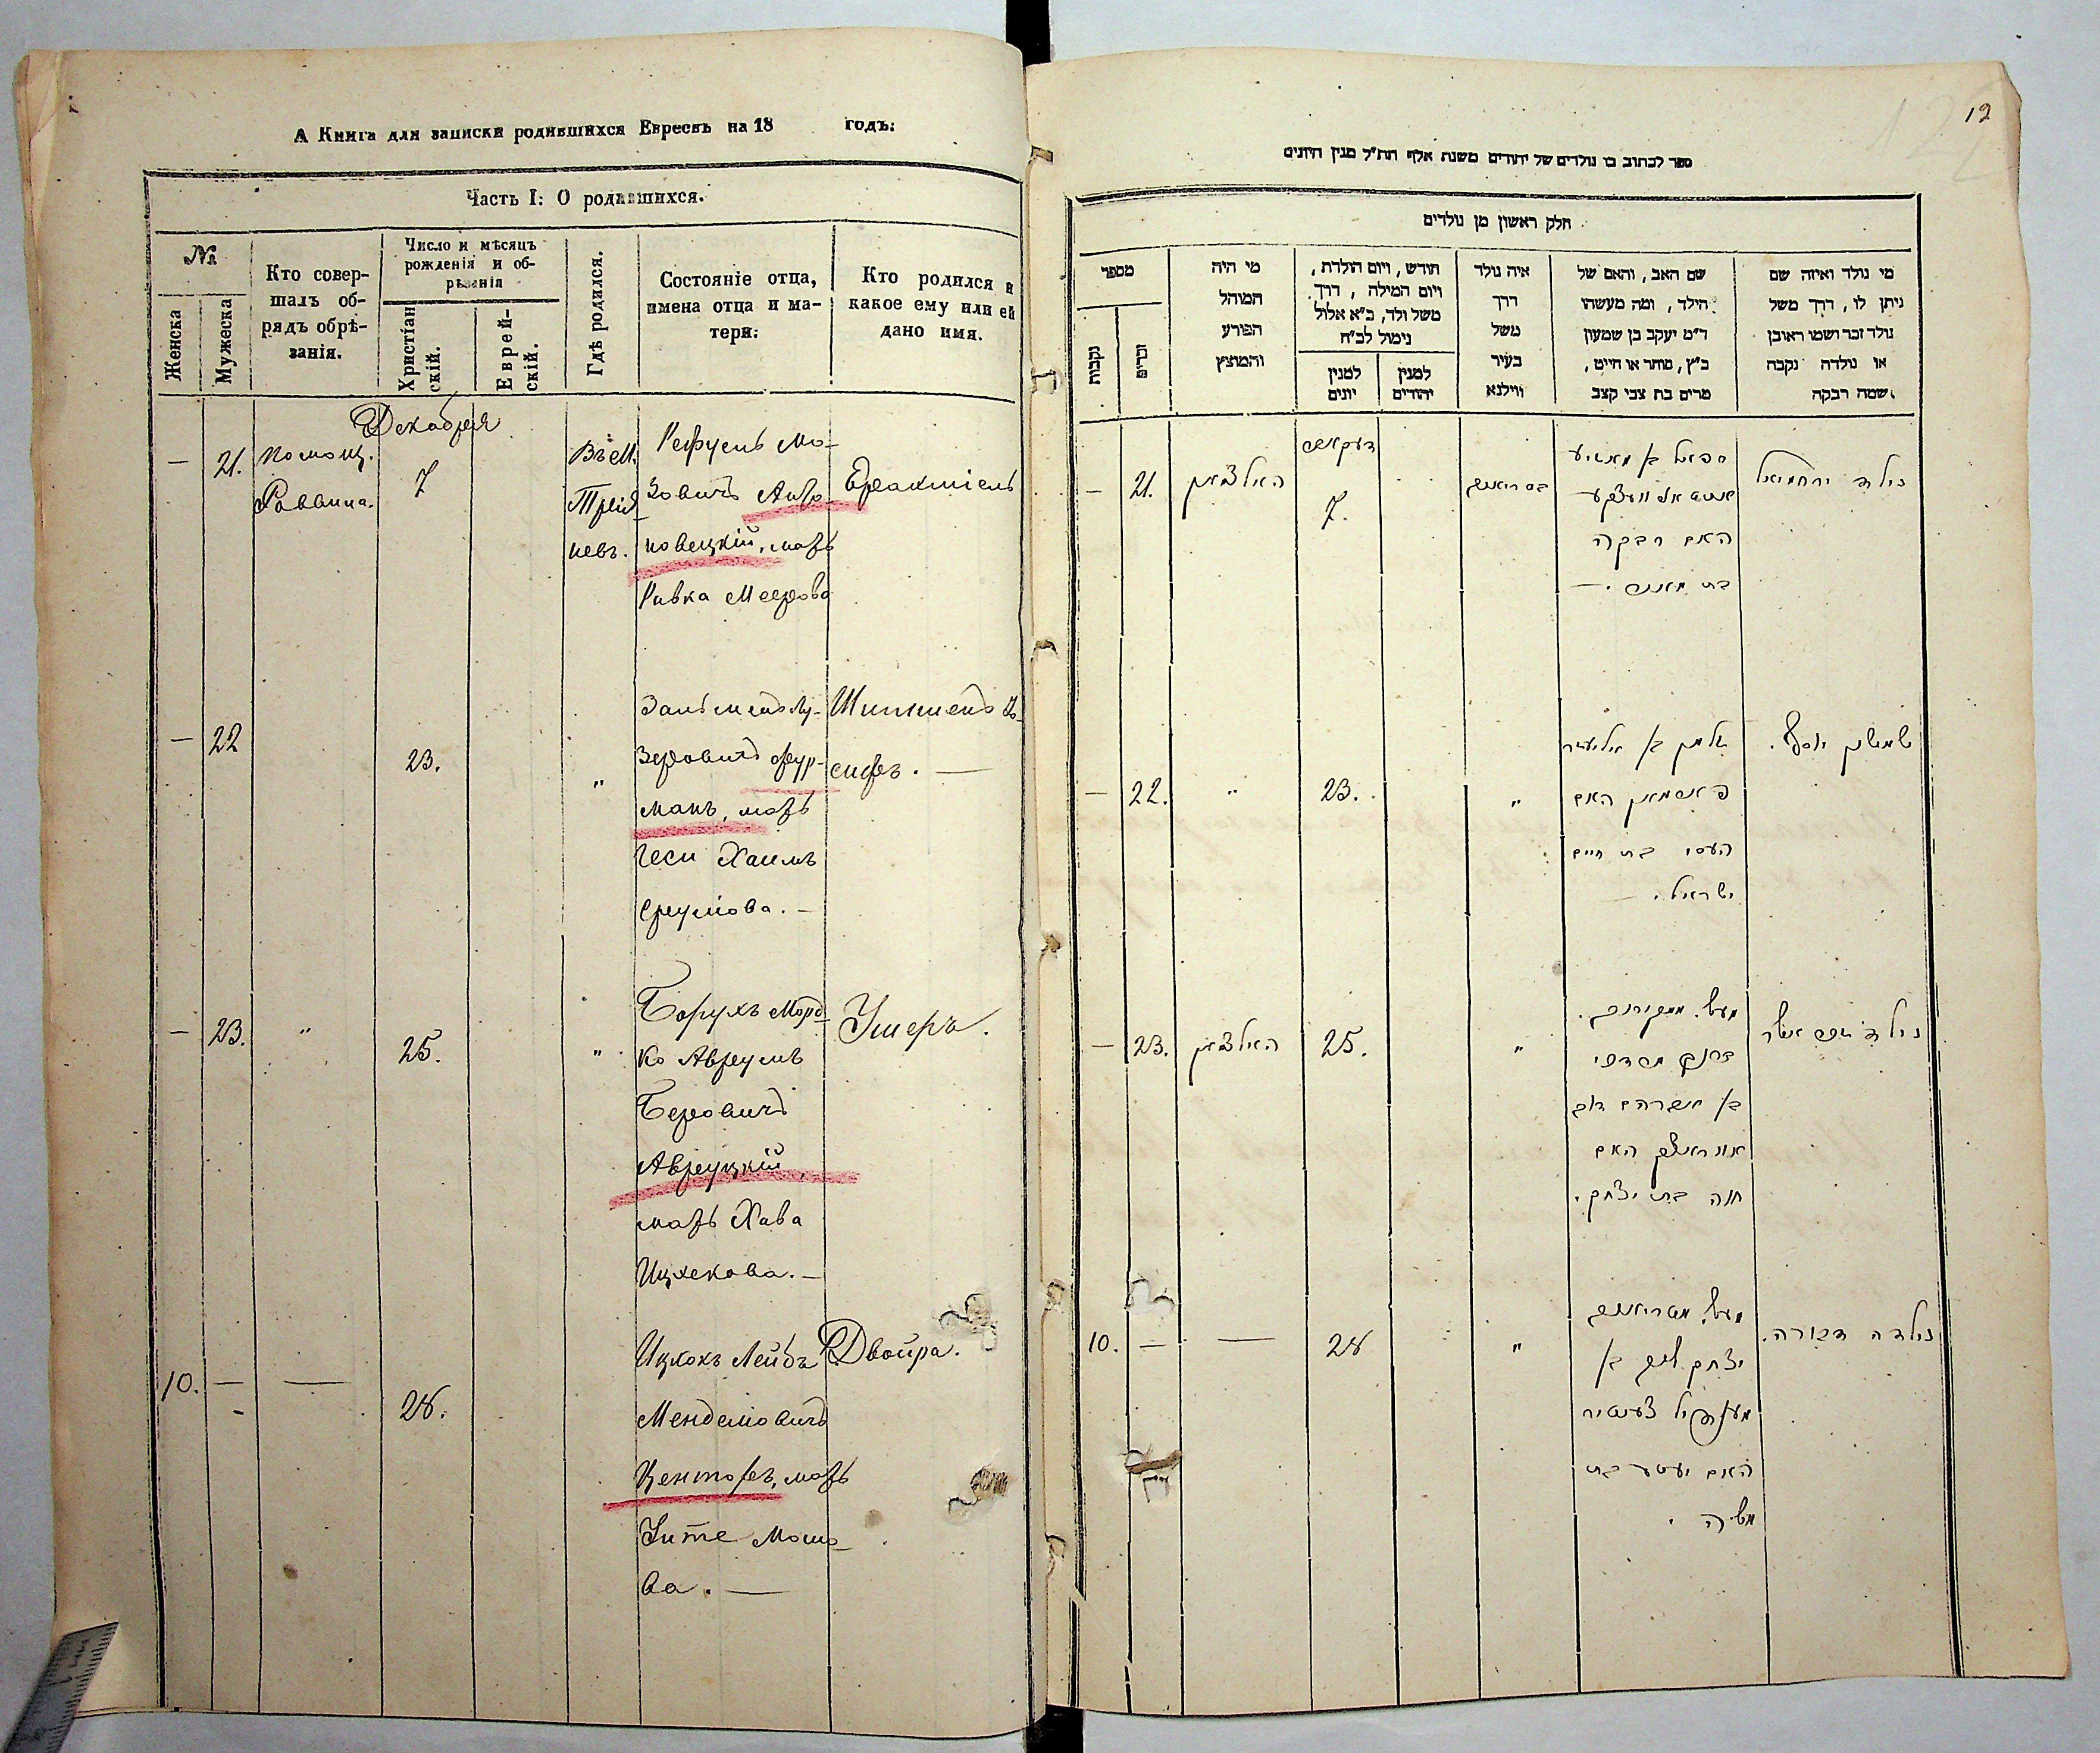 А Книга для записки родившихся Евреевъ на 18 годъ:
Часть I: О родившихся.
№
Женска
Мужеска
Кто совер-
шалъ об-
рядъ обрѣ-
занія.
Число и мѣсяцъ
рожденія и об-
рѣзанія
Христіан
скій.
Еврей-
скій.
Гдѣ родился.
Состояніе отца,
имена отца и ма-
тери:
Кто родился и
какое ему или ей
дано имя.
Декабря
—
21.
Помощ.
Раввина.
7
Въ М.
Трий
Рефуель Мо-
новецкій, мать
Ривка Меерова
—
22
23.
"
Зальменъ Лу-
зеровичъ Фур-
манъ, мать
Геси Хаимъ
Сруліова. —
Шимшенъ Іо-
сифъ. —
—
23.
"
25.
"
Борухъ Морд-
ко Аврумъ
Беровичъ
Авруцкій,
мать Хава
Ицхекова. —
Ушеръ.
10.
—
—
28.
Ицкохъ Лейбъ
Менделіовичъ
Центеръ, мать
Мошо-
ва. —
Двойра.
12
ספר לכתוב בו נולדים של יהודים משנת אלף תת״ל מנין היונים
חלק ראשון מן נולדים
מספר
נקבות
זכרים
מי היה
המוהל
הפורע
והמוצץ
חודש, ויום הולדת,
ויום המילה, דרך
משל ולד, ב״א אלול
נימול לב״ח
למנין
יונים
למנין
יהודים
איה נולד
דרך
משל
בעיר
ווילנא
שם האב, והאם של
הילד, ומה מעשהו
ד״מ יעקב בן שמעון
כ״ץ, סוחר או חייט,
מרים בת צבי קצב
מי נולד ואיזה שם
ניתן לו, דרך משל
נולד זכר ושמו ראובן
או נולדה נקבה
שמה רבקה
—
21.
7.
האם רבקה
נולד ירחמיאל
—
22.
"
23.
"
זלמן בן אליעזר
האם
העסי בת חיים
ישראל. —
שמשון יוסף.
—
23.
25.
"
ברוך מרדכי
בן אברהם דוב
האם
חוה בת יצחק.
נולד אשר
10.
—
—
28
"
יצחק לייב בן
מענדיל צענטיר
האם יעטע בת
משה.
נולדה דבורה.